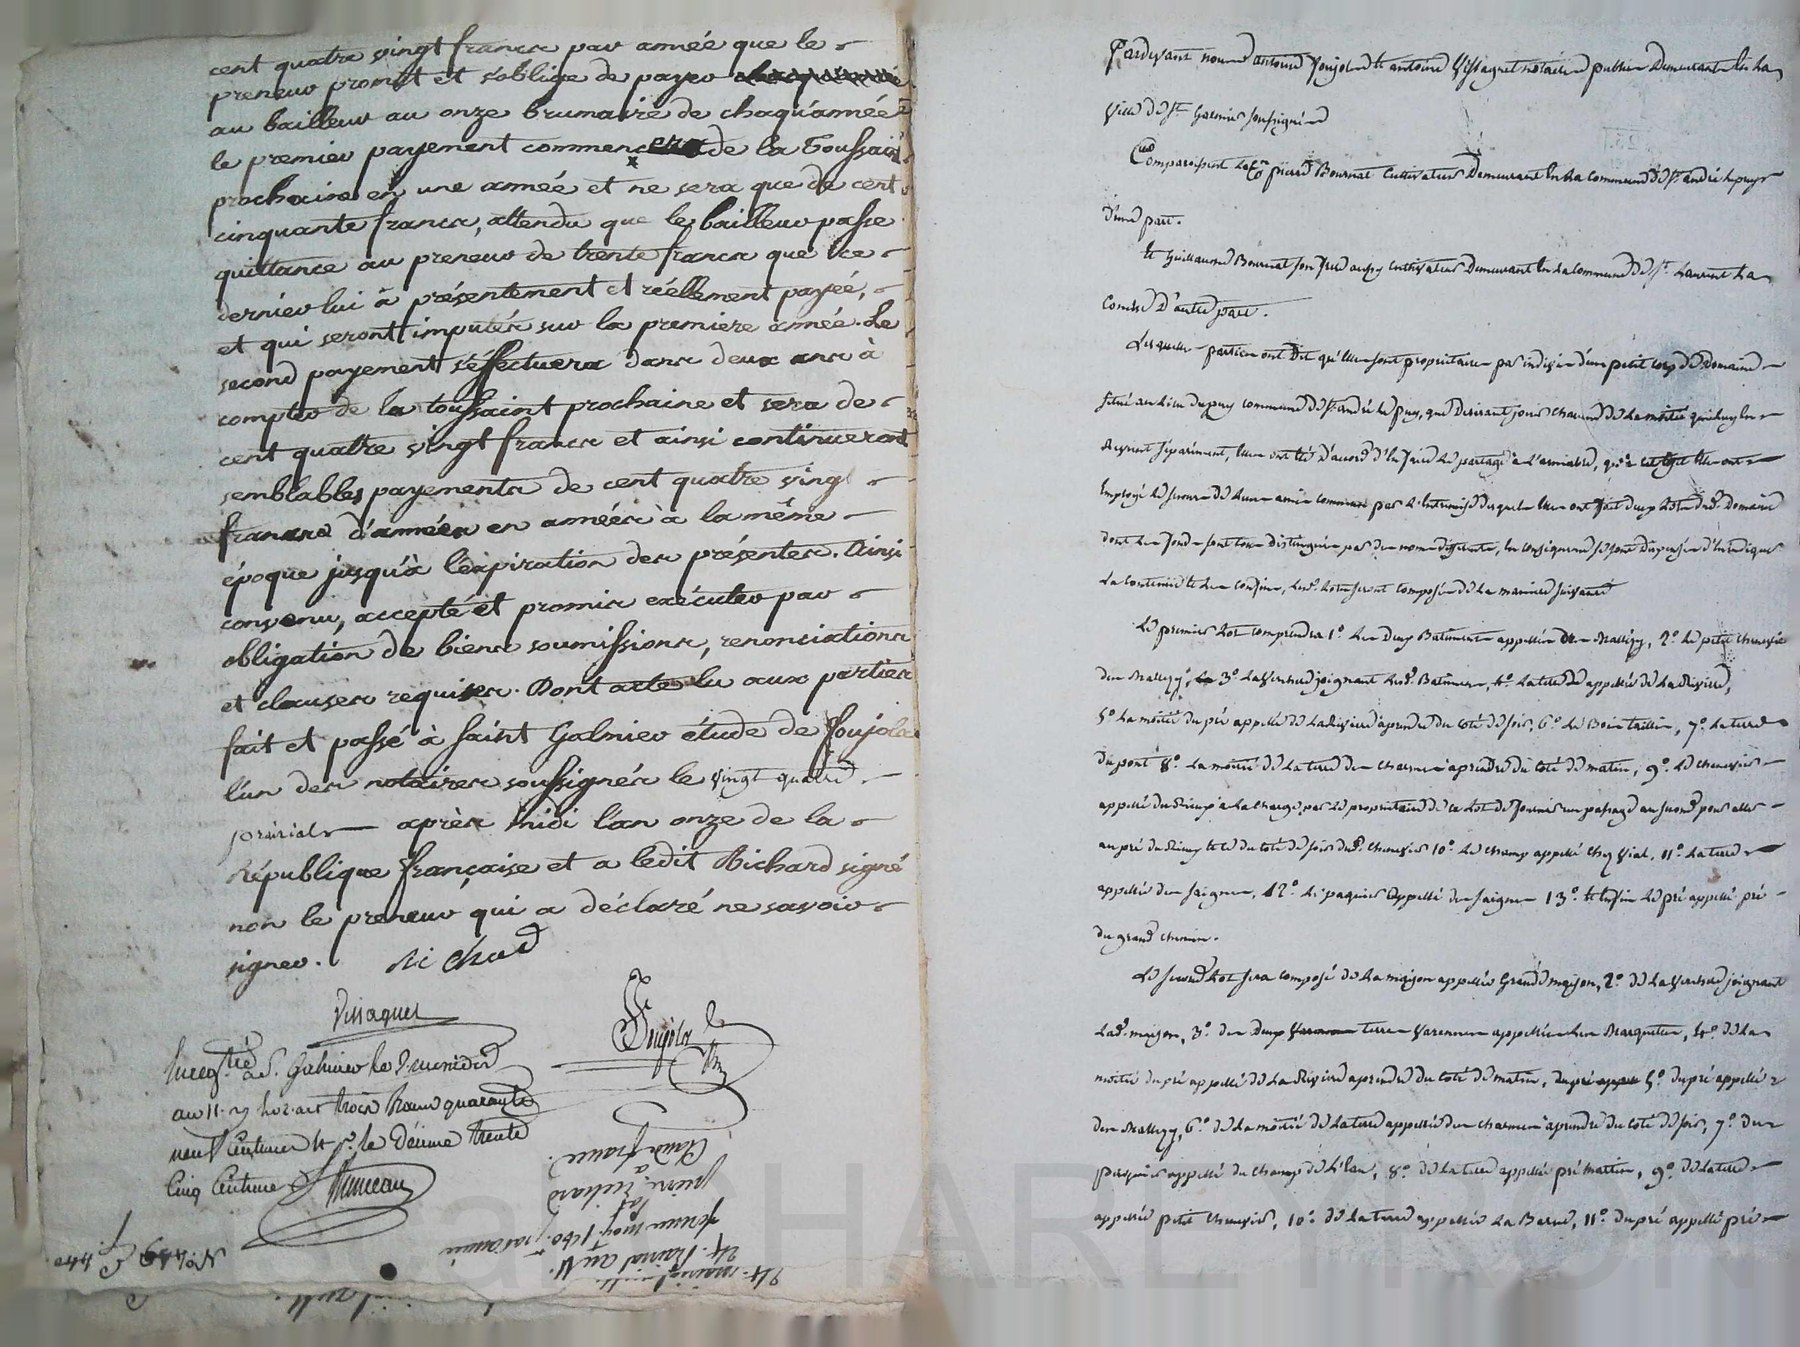 cent quatre vingt francs par année que le
preneur promet et s'oblige de payer
au bailleur au onze brumaire de chaqu'année
le premier payement commencera de la Toussaint
prochaine en une année et ne sera que de cent
cinquante francs, attendu que le bailleur passe
quittance au preneur de trente francs que ce
dernier lui à présentement et réellement payée,
et qui seront imputés sur la premiere année. Le
second payement s'éffectuera dans deux ans à
compter de la toussaint prochaine et sera de
cent quatre vingt francs et ainsi continueront
semblables payements de cent quatre vingt
francs d'années en années à la même
époque jusqu'à l'éxpiration des présentes. Ainsi
convenu, accepté et promis exécuter par
obligation de biens soumissions, renonciations
et clauses requises. Dont acte lu aux parties
fait et passé à saint Galmier étude de Poujola
l'un des notaires soussignés le vingt quatre
prairial après midi l'an onze de la
République française et a ledit Richard signé
non le preneur qui a déclaré ne savoir
signer. Richard
Vissaguet
Poujola
à St. Galmier le
an 11. trois francs quarante
neuf Centimes le Décime trente
Cinq Centimes
pierre Richard
à
Claude france
24. prairial an 11.
No. 449
Pardevant nous antoine Poujola et antoine Vissaguet notaires publics Demeurants en La
Ville de St. Galmier soussignés
Comparoissent Le Cen pierre Bournat Cultivateur Demeurant en La commune de St. andré le puy
D'une part.
et Guillaume Bournat son frere aussy cultivateur Demeurant en La commune de St. Laurent La
Conche D'autre part.
Lesquelles parties ont Dit qu'elles sont propriétaires par indivis d'un petit corps de Domaine
situé au Lieu du puy commune de St. andré le puy, que Desirant jouir chacune de La moitié qui leur en
revient séparément, elles ont été D'accord d'en faire Le partage à L'amiable, qu'à cet effet elles ont
Employé Le secours de Leurs amis communs par L'entremise desquels elles ont fait deux Lots dud. Domaine
dont Les fonds sont tous distingués par des noms différents, en conséquence se sont dispensés d'en indiquer
La contenue et Les confins, Lesd. Lots seront composés de La maniere suivante
Le premier Lot comprendra 1o. Les Deux Batiments appellés des Mallezy, 2o. Le petit chenevier
des Mallezy, 3o. La verchere joignant Lesd. Batiments, 4o. La terre appellée de La Riviere,
5o. La moitié du pré appellé de La Riviere à prendre du coté de soir, 6o. Le Bois taillis, 7o. La terre
du pont 8o. La moitié de La terre des charmes à prendre du coté de matin, 9o. Le chenevier
appellé à La charge par Le propriétaire de ce Lot de fournir un passage au second pour aller
au pré du coté de soir dud. chenevier 10o. Le champ appellé chez Vial, 11o. La terre
appellée des saignes, 12o. Le paquier appellé des saignes 13o. et enfin Le pré appellé pré
du grand chemin.
Le second Lot sera composé de La maison appellée Grande maison, 2o. de La verchere joignant
Lad. maison, 3o. des Deux terres varennes appellées Les Marquettes, 4o. de La
moitié du pré appellé de La Riviere à prendre du coté de matin, 5o. du pré appellé
des Mallezy, 6o. de La moitié de La terre appellée des charmes à prendre du coté de soir, 7o. du
paquier appellé du champ de L'étan, 8o. de La terre appellée pré martin, 9o. de La terre
appellée petit chenevier, 10o. de La terre appellée La Barre, 11o. du pré appellé pré